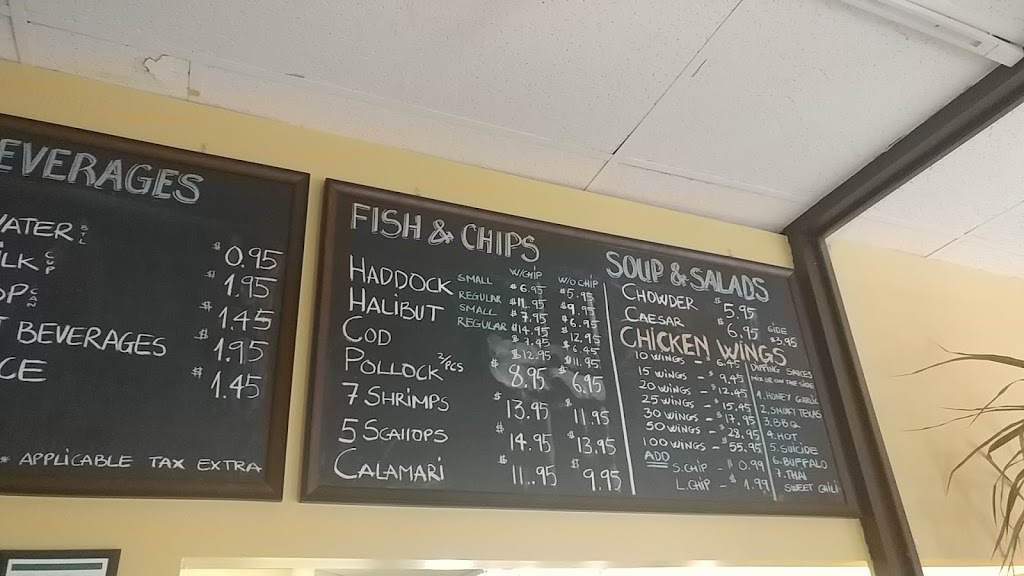 EVERAGES
WATER $ 0.95
ILK $ 1.95
OP $ 1.45
T BEVERAGES $ 1.95
CE $ 1.45
* APPLICABLE TAX EXTRA
FISH & CHIPS
W/CHIP W/O CHIP
HADDOCK SMALL $6.95 $5.95
REGULAR $11.95 $9.95
HALIBUT SMALL $7.95 $6.95
REGULAR $14.95 $12.95
COD $7.95 $6.45
$12.95 $11.95
POLLOCK 2/PCS 8.95 6.95
7 SHRIMPS $13.95 $11.95
5 SCALLOPS $14.95 $13.95
CALAMARI $11.95 $9.95
SOUP & SALADS
CHOWDER $5.95
CAESAR $6.95 SIDE $3.95
CHICKEN WINGS
10 WINGS - 6.45
15 WINGS - $9.45
20 WINGS - $12.45
25 WINGS - $15.45
30 WINGS - $17.95
50 WINGS - $28.95
100 WINGS - $55.95
ADD
S.CHIP - 0.99
L.CHIP - $1.99
DIPPING SAUCES
MIX OR ON THE SIDE
1. HONEY GARLIC
2. SMOKY TEXAS
3. BBQ
4. HOT
5. SUICIDE
6. BUFFALO
7. THAI
SWEET CHILI